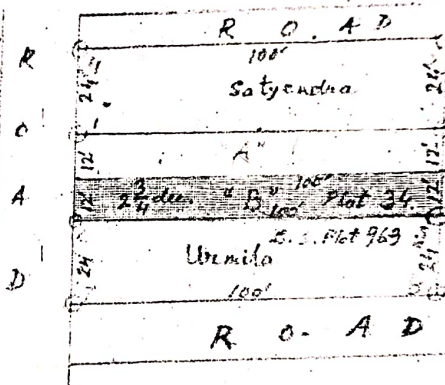 R O A D
R O A D
100'
24'
Satyendra
24'
12'
"A"
12'
12'
2 3/4 dec. "B" 100' Plot 34.
12'
100'
Plot 963
24'
Urmila
24'
100'
R O A D